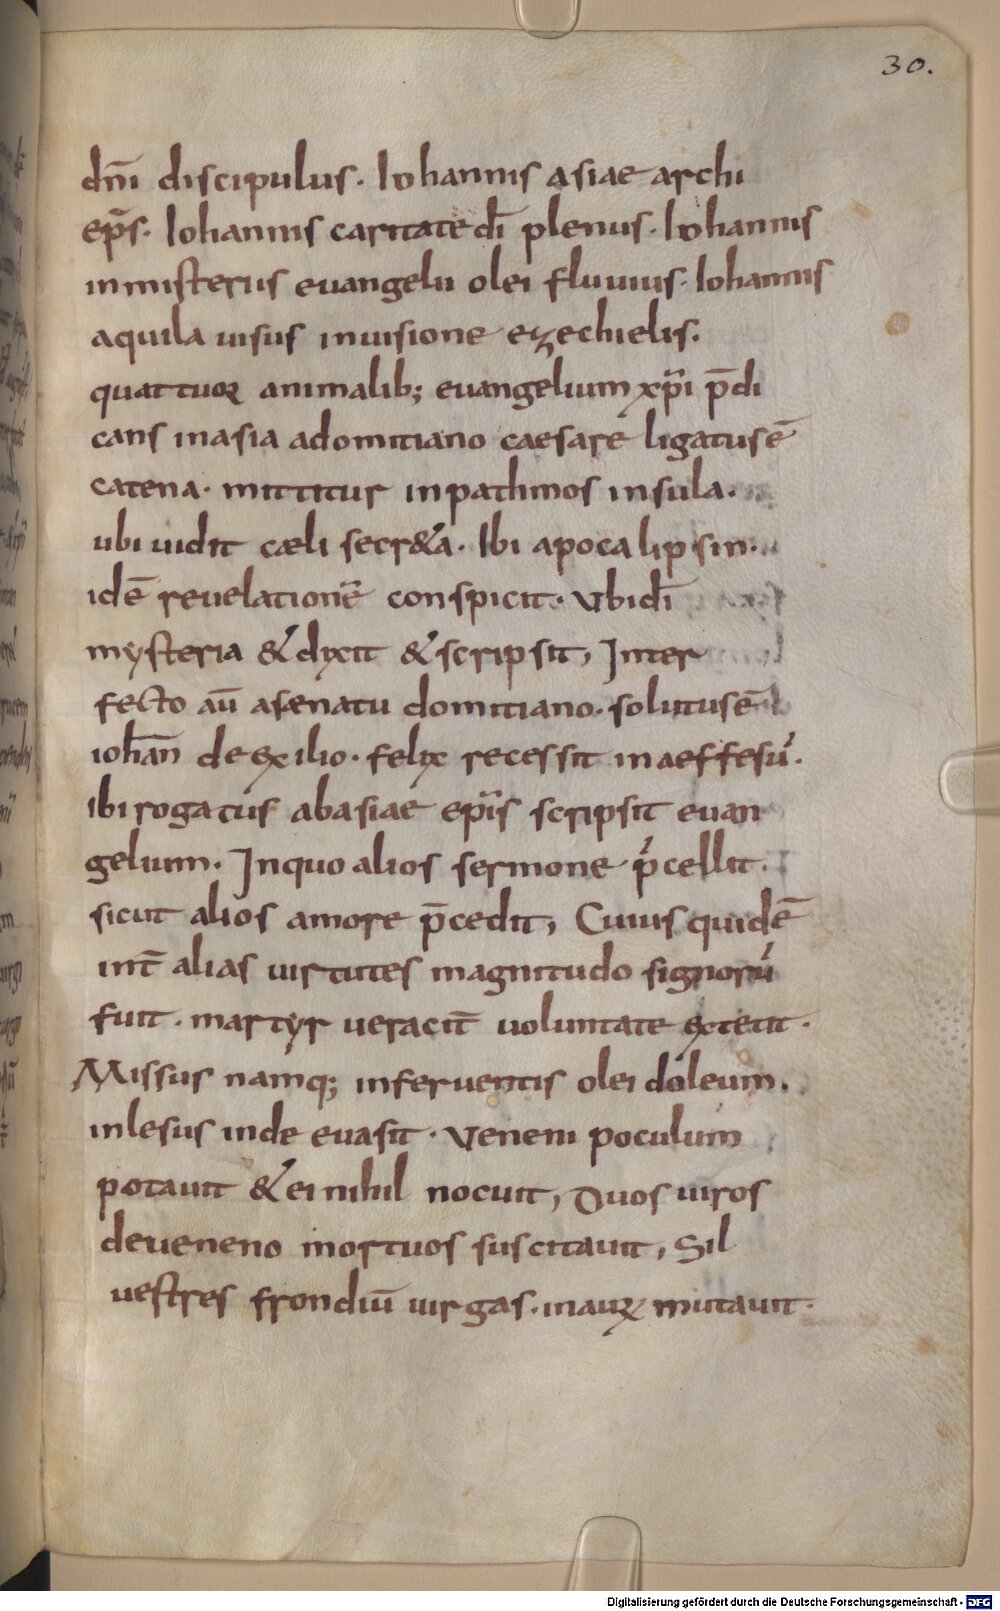 30.
dn̄i discipulus. Iohannis asiae archi
ep̄s. Iohannis caritate dī plenus. Iohannis
in misteriis euangelii olei fluuius. Iohannis
aquila uisus in uisione ezechielis.
quattuor animalib; euangelium xp̄i p̄di
cans in asia a domitiano caesare ligatus ē
catena. mittitur in pathmos insula.
ubi uidit cæli secr&a. Ibi apocalipsin.
idē reuelationē conspicit. Vbi dī
mysteria & dixit & scripsit, Inter
fecto aū a senatu domitiano. solutus ē
iohān de exilio. felix recessit in aeffesū.
ibi rogatus ab asiae ep̄is scripsit euan
gelium. In quo alios sermone p̄cellit.
sicut alios amore p̄cedit, Cuius quidē
int̄ alias uirtutes magnitudo signorū
fuit. martyr ueracit̄ uoluntate extetit.
Missus namq; in feruentis olei doleum.
inlesus inde euasit. Veneni poculum
potauit & ei nihil nocuit, Duos uiros
de ueneno mortuos suscitauit, Sil
uestres frondiū uirgas. in aurum mutauit.
Digitalisierung gefördert durch die Deutsche Forschungsgemeinschaft - DFG